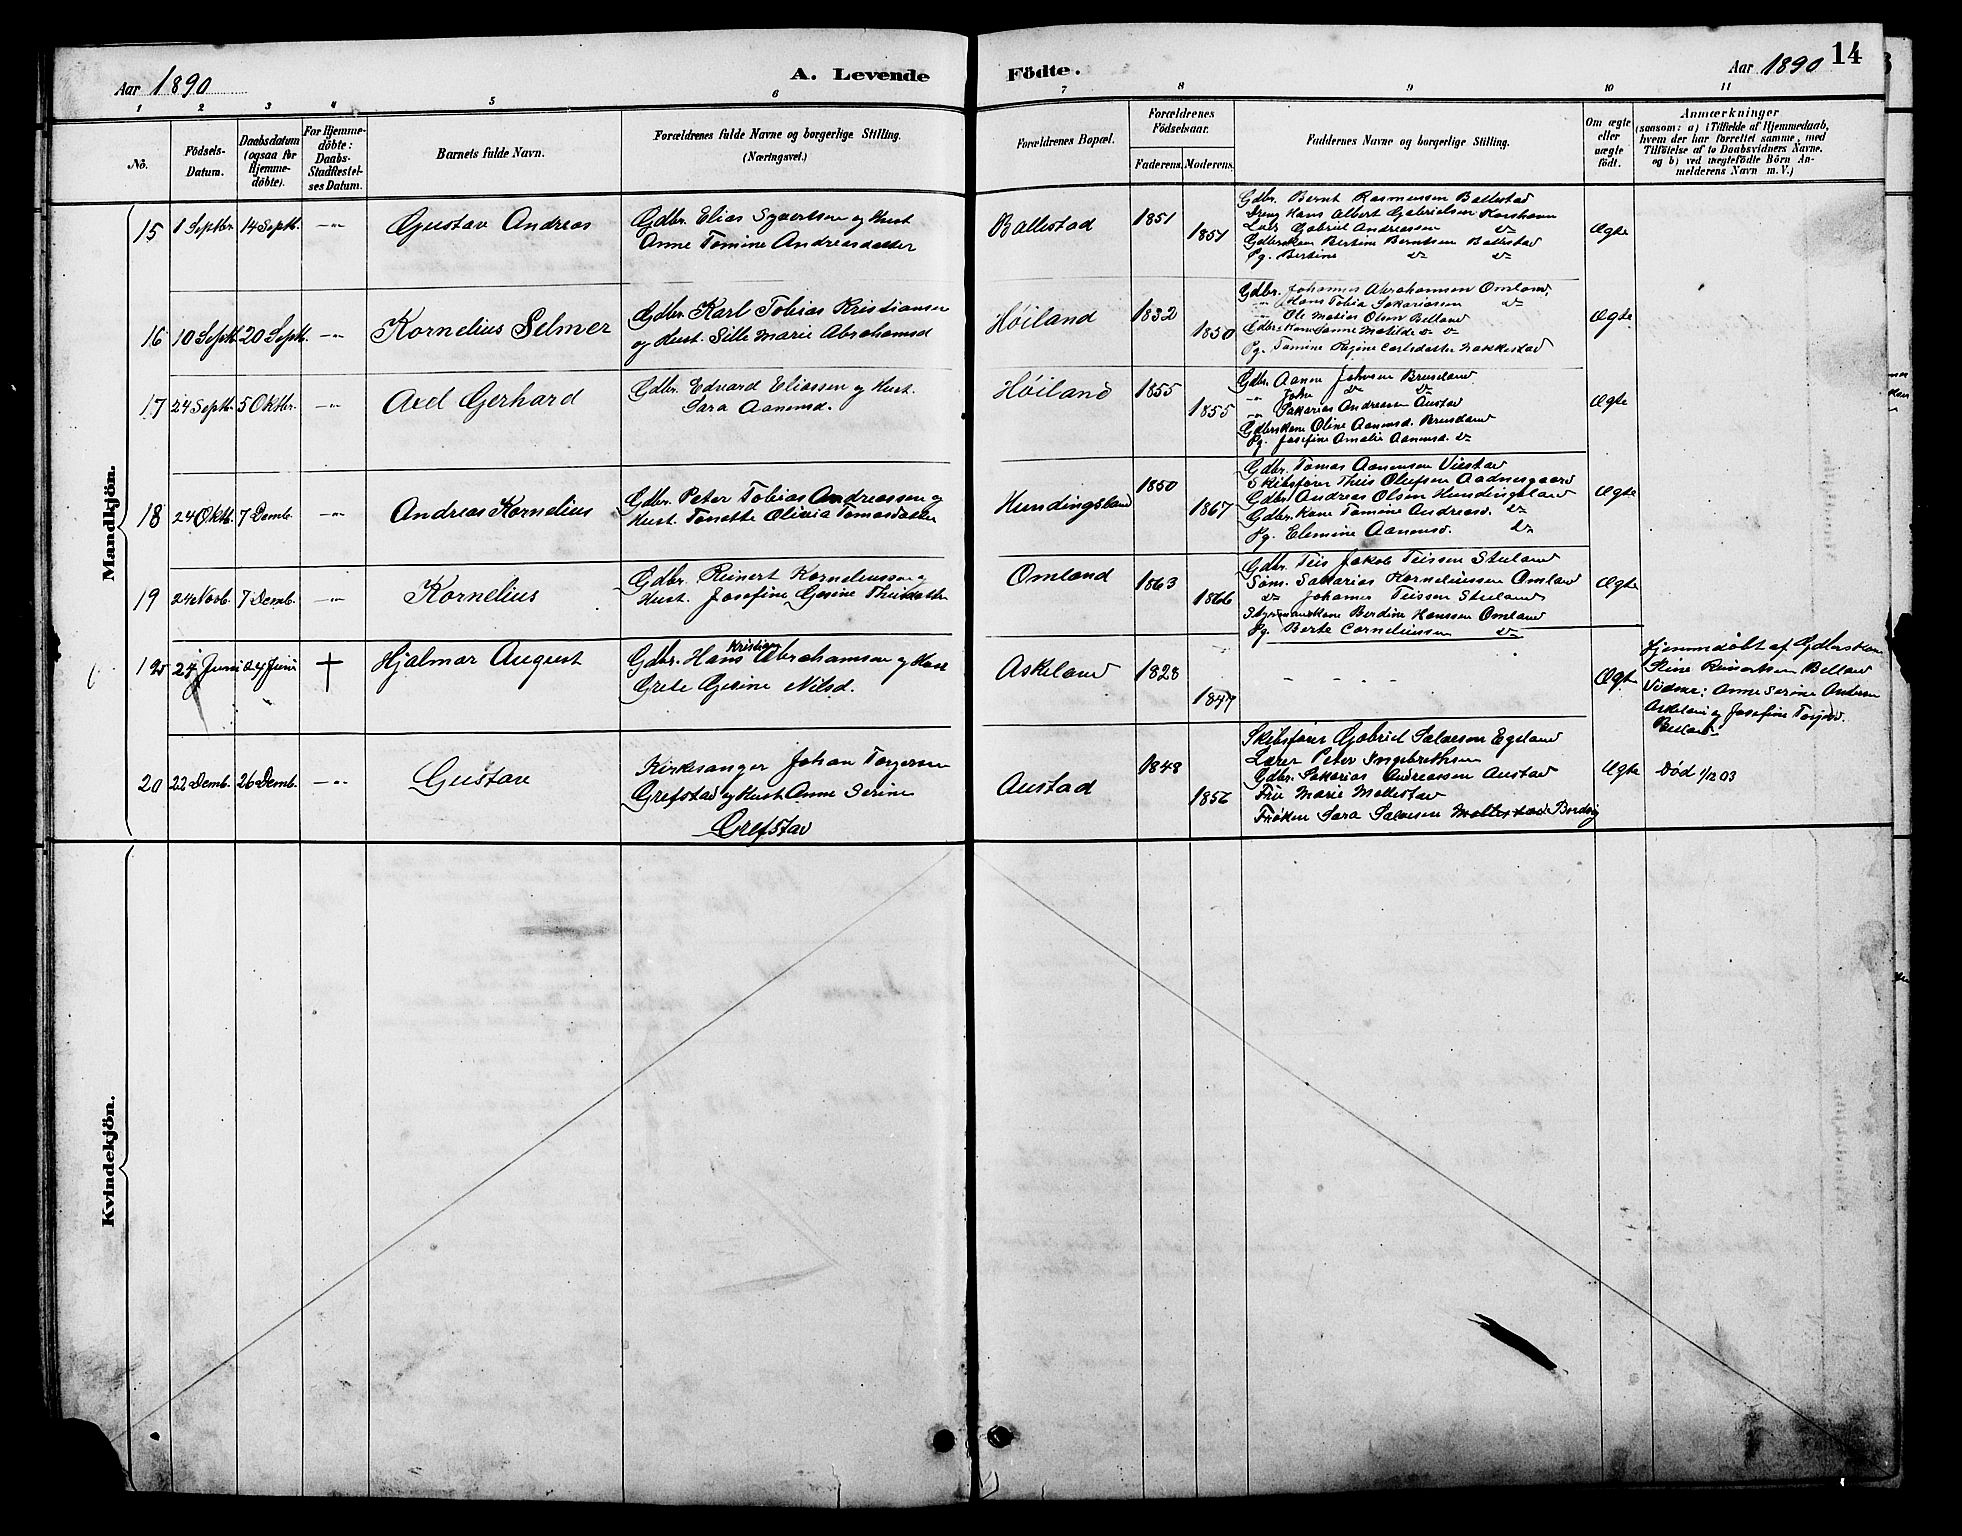 Aar 1890 A. Levende Födte. Aar 1890 14
1 2 3 4 5 6 7 8 9 10 11
Nò.
Födsels-Datum.
Daabsdatum (ogsaa for Hjemme-döbte).
For Hjemme-döbte: Daabs-Stadfæstel-ses Datum.
Barnets fulde Navn.
Forældrenes fulde Navne og borgerlige Stilling. (Næringsvei.)
Forældrenes Bopæl.
Forældrenes Födselsaar.
Faderens. Moderens.
Faddernes Navne og borgerlige Stilling.
Om ægte eller uægte födt.
Anmærkninger
(saasom: a) i Tilfælde af Hjemmedaab,
hvem der har forrettet samme, med
Tilföielse af to Daabsvidners Navne.
og b) ved uægtefödte Börn An-
melderens Navn m. V.)
Mandkjön.
15 1 Septbr. 14 Septb. -„- Gustav Andreas
Gdbr. Elias Syvertsen og Hust.
Anne Tomine Andreasdatter
Ballestad 1851 1851
Gdbr. Bernt Rasmussen Ballestad
Dreng Hans Albert Gabrielsen Korshavn
Gabriel Andreassen do
Gdbrskone Bertine Berntsen Ballestad
Pg. Bertine do do
Ægte
16 10 Septb. 20 Septb. -„- Kornelius Selmer
Gdbr. Karl Tobias Kristiansen
og Hust. Sille Marie Abrahamsd
Høiland 1832 1850
Gdbr. Johannes Abrahamsen Omland
-„- Hans Tobia Sakariassen do
-„- Ole Matias Olsen Belland
Gdbr. Kone Sanne Matilde do do
Pg. Tomine Regine Carlsdatter
Ægte
17 24 Septb. 5 Oktbr. -„- Axel Gerhard
Gdbr. Edvard Eliassen og Hust.
Sara Aanensd.
Høiland 1855 1855
Gdbr. Aanen Johnsen Bruseland
-„- John do do
-„- Sakarias Andreassen Austad
Gdbrskone Oline Aanensd. Bruseland
Pg. Josefine Amalie Aanensd. do
Ægte
18 24 Oktb. 7 Decmb. -„- Andreas Kornelius
Gdbr. Peter Tobias Andreassen og
Hust. Tonette Olivia Tomasdatter
Hundingsland 1850 1867
Gdbr. Tomas Aanensen Viestad
Skibsfører Theis Olufsen Aadnesgaard
Gdbr. Andreas Olsen Hundingsland
Gdbr. Kone Tomine Andreasd. do
Pg. Elemine Aanensd. do
Ægte
19 24 Novb. 7 Decmb. -„- Kornelius
Gdbr. Reinert Korneliussen og
Hust. Josefine Gesine Theisdatter
Omland 1863 1866
Gdbr. Teis Jakob Teissen Stuland
Søns. Sakarias Korneliussen Omland
do Johannes Teissen Stuland
Styrmandskone Berdine Hanssen Omland
Pg. Berte Corneliussen do
Ægte
24 Juni 24 Juni † Hjalmar August
Kristian
Gdbr. Hans Abrahamsen og Hust
Grete Gesine Nilsd.
Askeland 1828 1847
- - - -
Ægte
Hjemmedøbt af Gdbrskone
Stine Reinertsen Belland
Vidner: Anne Serine Andersen
Askeland og Josefine Torjusd.
Belland
20 22 Decmb. 26 Decmb. -„- Gustav
Kirkesanger Johan Torjersen
Grefstad og Hust Anne Serine
Grefstad
Austad 1848 1856
Skibsfører Gabriel Salvesen Egeland
Lærer Peter Ingebrethsen
Gdbr. Sakarias Andreassen Austad
Fru Marie Mollestad
Frøken Sara Salvesen
Ægte
Død 1/12 03
Kvindekjön.